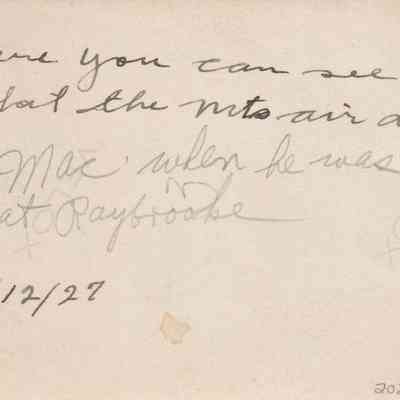 ere you can see
hat the mts air d
Mac when he was
at Raybrooke
12/27
202